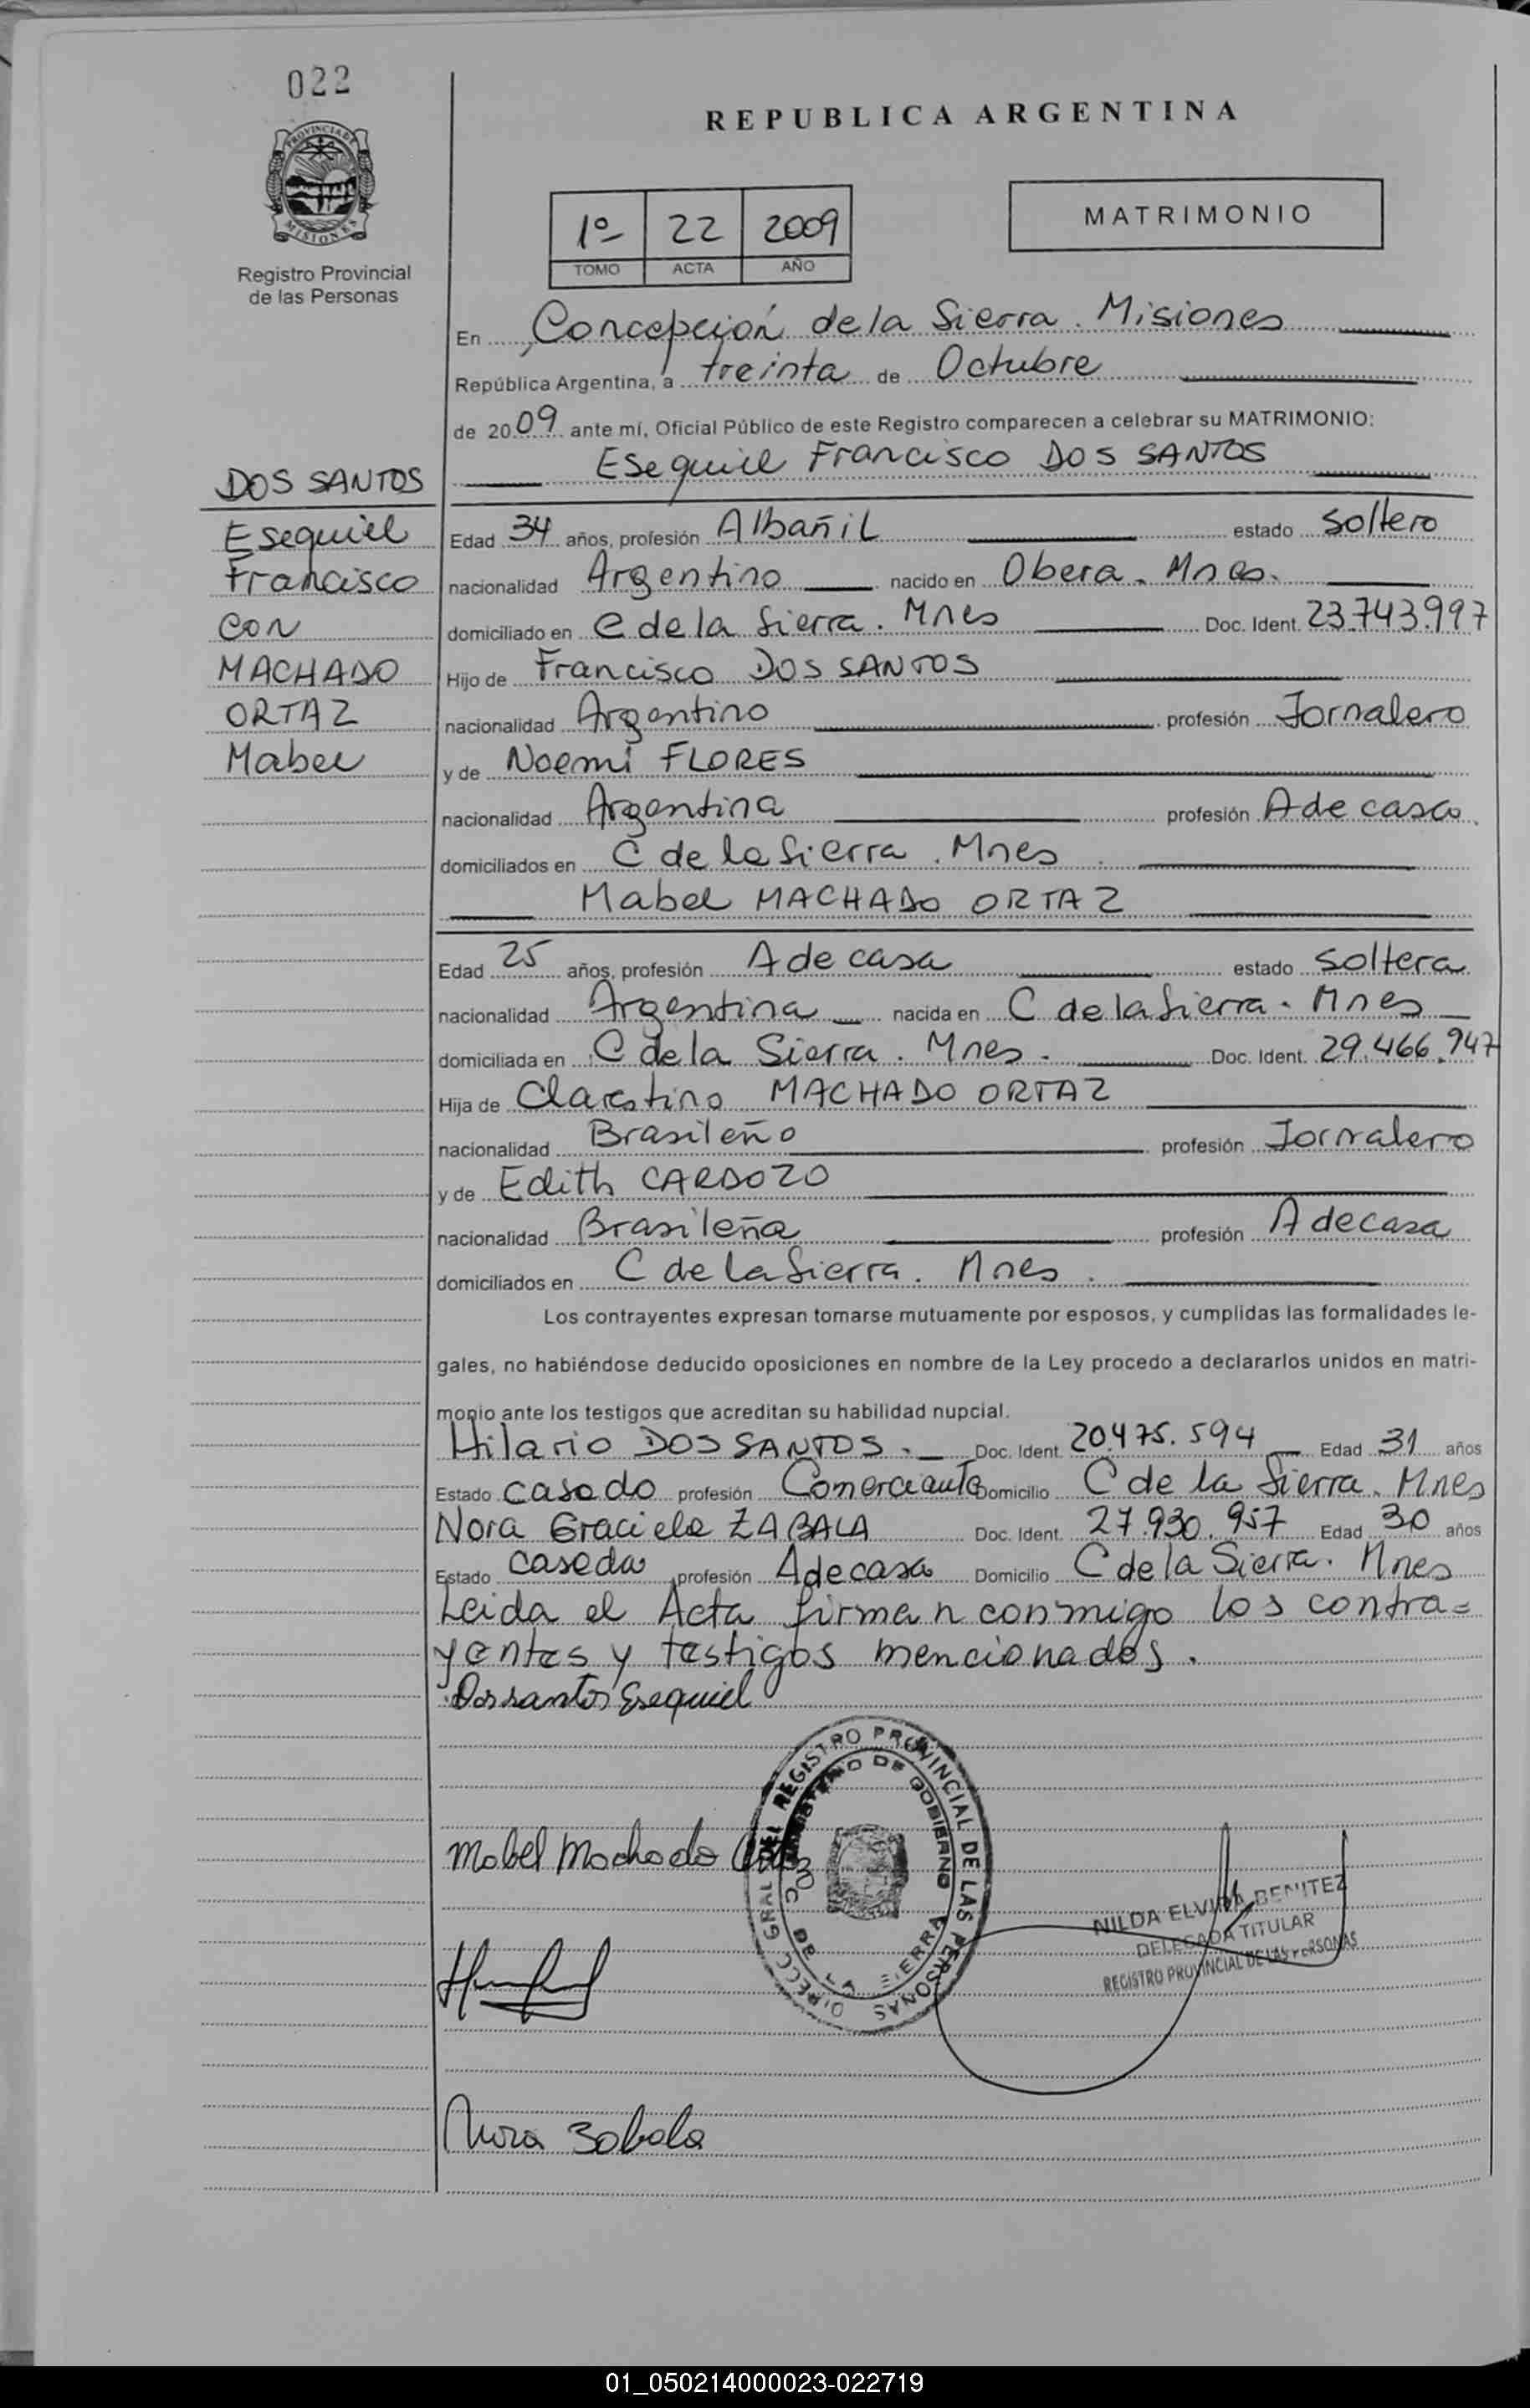 022
PROVINCIA DE
MISIONES
Registro Provincial
de las Personas
REPUBLICA ARGENTINA
1º 22 2009
TOMO ACTA AÑO
MATRIMONIO
En Concepción de la Sierra. Misiones
República Argentina, a treinta de Octubre
de 2009 ante mí, Oficial Público de este Registro comparecen a celebrar su MATRIMONIO:
Esequiel Francisco DOS SANTOS
DOS SANTOS
Esequiel
Francisco
con
MACHADO
ORTAZ
Mabel
Edad 34 años, profesión Albañil estado soltero
nacionalidad Argentino nacido en Obera. Mnes.
domiciliado en C de la Sierra. Mnes Doc. Ident. 23.743.997
Hijo de Francisco DOS SANTOS
nacionalidad Argentino profesión Jornalero
y de Noemi FLORES
nacionalidad Argentina profesión A de casa
domiciliados en C de la Sierra. Mnes.
Mabel MACHADO ORTAZ
Edad 25 años, profesión A de casa estado soltera
nacionalidad Argentina nacida en C de la Sierra. Mnes
domiciliada en C de la Sierra. Mnes. Doc. Ident. 29.466.947
Hija de Clarestino MACHADO ORTAZ
nacionalidad Brasileño profesión Jornalero
y de Edith CARDOZO
nacionalidad Brasileña profesión A de casa
domiciliados en C de la Sierra. Mnes.
Los contrayentes expresan tomarse mutuamente por esposos, y cumplidas las formalidades le-
gales, no habiéndose deducido oposiciones en nombre de la Ley procedo a declararlos unidos en matri-
monio ante los testigos que acreditan su habilidad nupcial.
Hilario DOS SANTOS. Doc. Ident. 20.475.594 Edad 31 años
Estado casado profesión Comerciante Domicilio C de la Sierra. Mnes
Nora Graciela ZABALA Doc. Ident. 27.930.957 Edad 30 años
Estado casada profesión A de casa Domicilio C de la Sierra. Mnes
Leida el Acta firman conmigo los contra=
yentes y testigos mencionados.
Dos santos Esequiel
DIRECC. GRAL. DEL REGISTRO PROVINCIAL DE LAS PERSONAS
MINISTERIO DE GOBIERNO
DE LA SIERRA
Mabel Machado Ortaz
NILDA ELVIRA BENITEZ
DELEGADA TITULAR
REGISTRO PROVINCIAL DE LAS PERSONAS
Nora Zabala
01_050214000023-022719